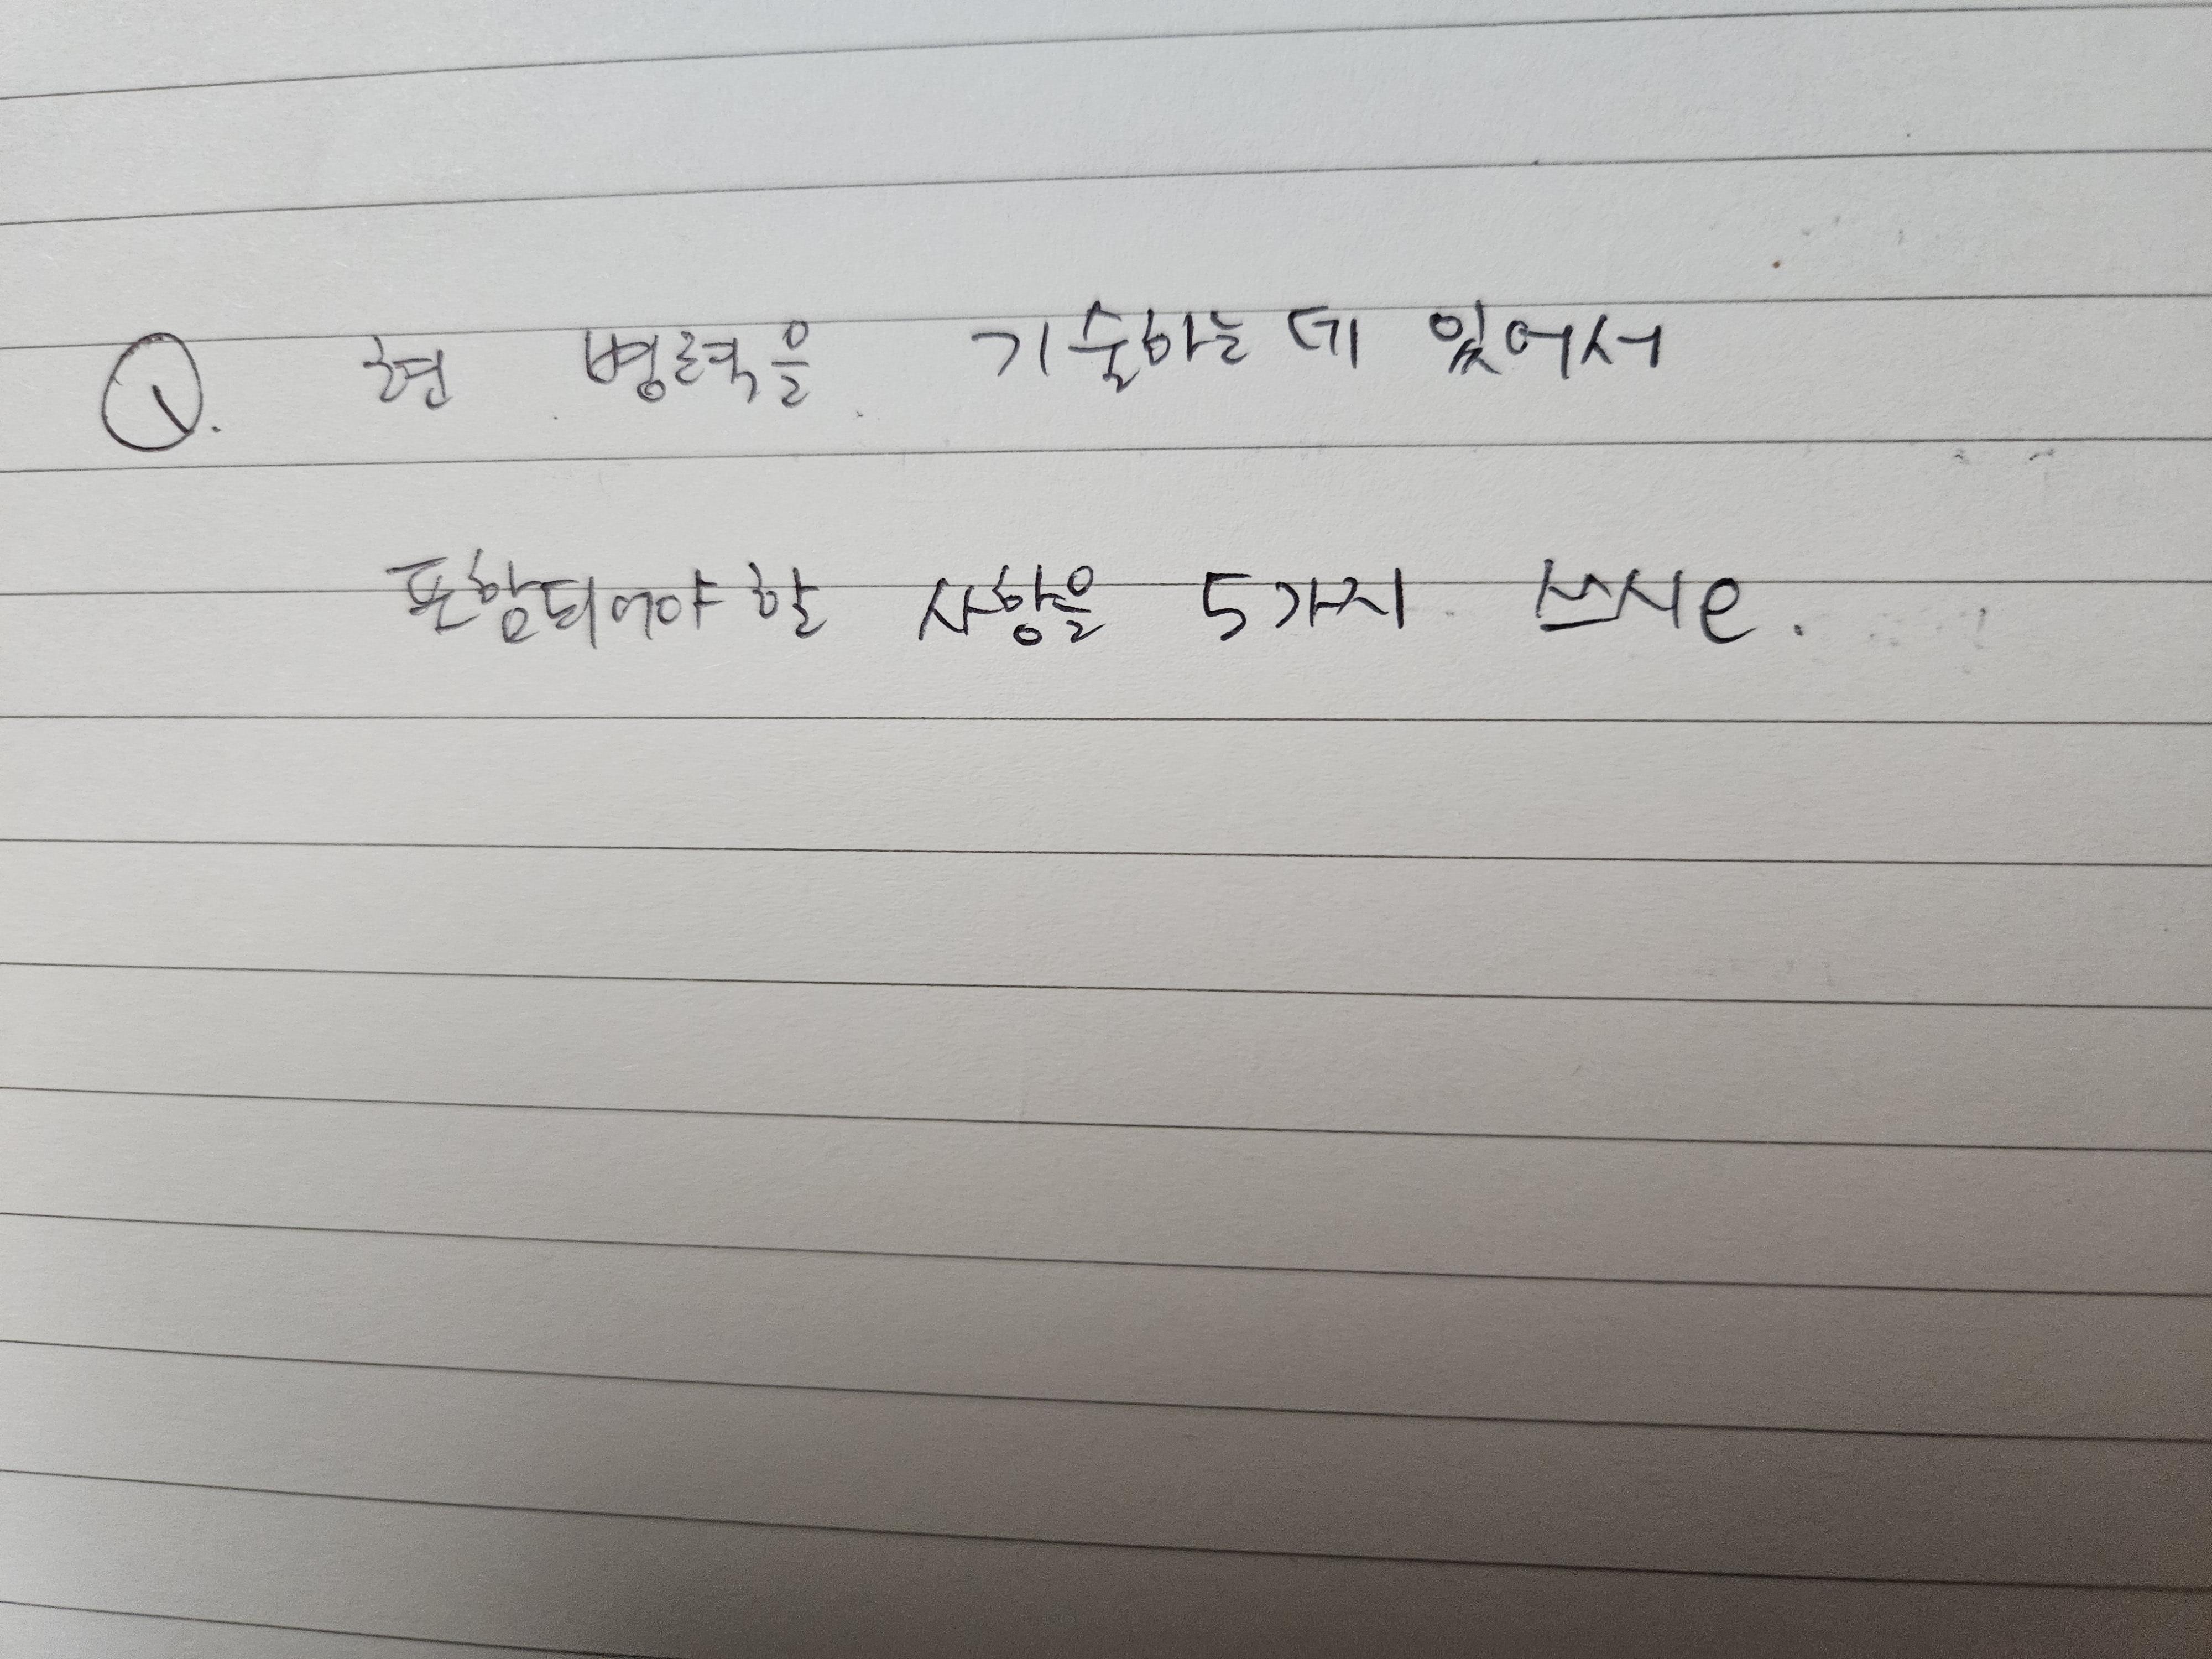 Q. 현 병력을 기술하는데 있어서
포함되어야 할 사항을 5가지 쓰시오.